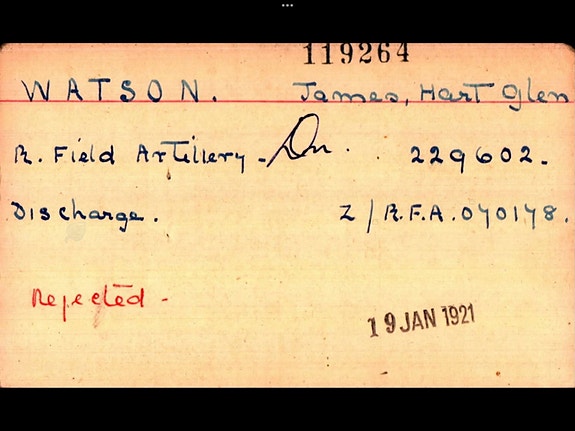 119264
WATSON. James, Hart Glen
R. Field Artillery - Dr. 229602.
Discharge. Z / R.F.A. 070178.
Rejected -
19 JAN 1921